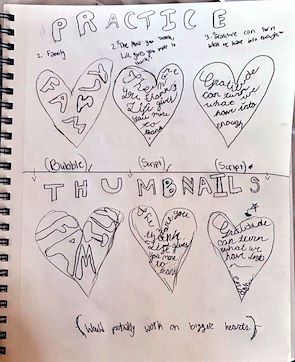 PRACTICE
1. Family
2. The more you thank Life gives you more to
3. Gratitude can turn
what we have into enough
FAMILY
Life gives
you more
to
Gratitude
can turn
what we
have into
enough
(Bubble)
(Script)
(Script)*
THUMBNAILS
FAMILY
you
thank
Life gives
you more
to
thank
Gratitude
can turn
what we
have into
enough
(Would probably work on bigger hearts)